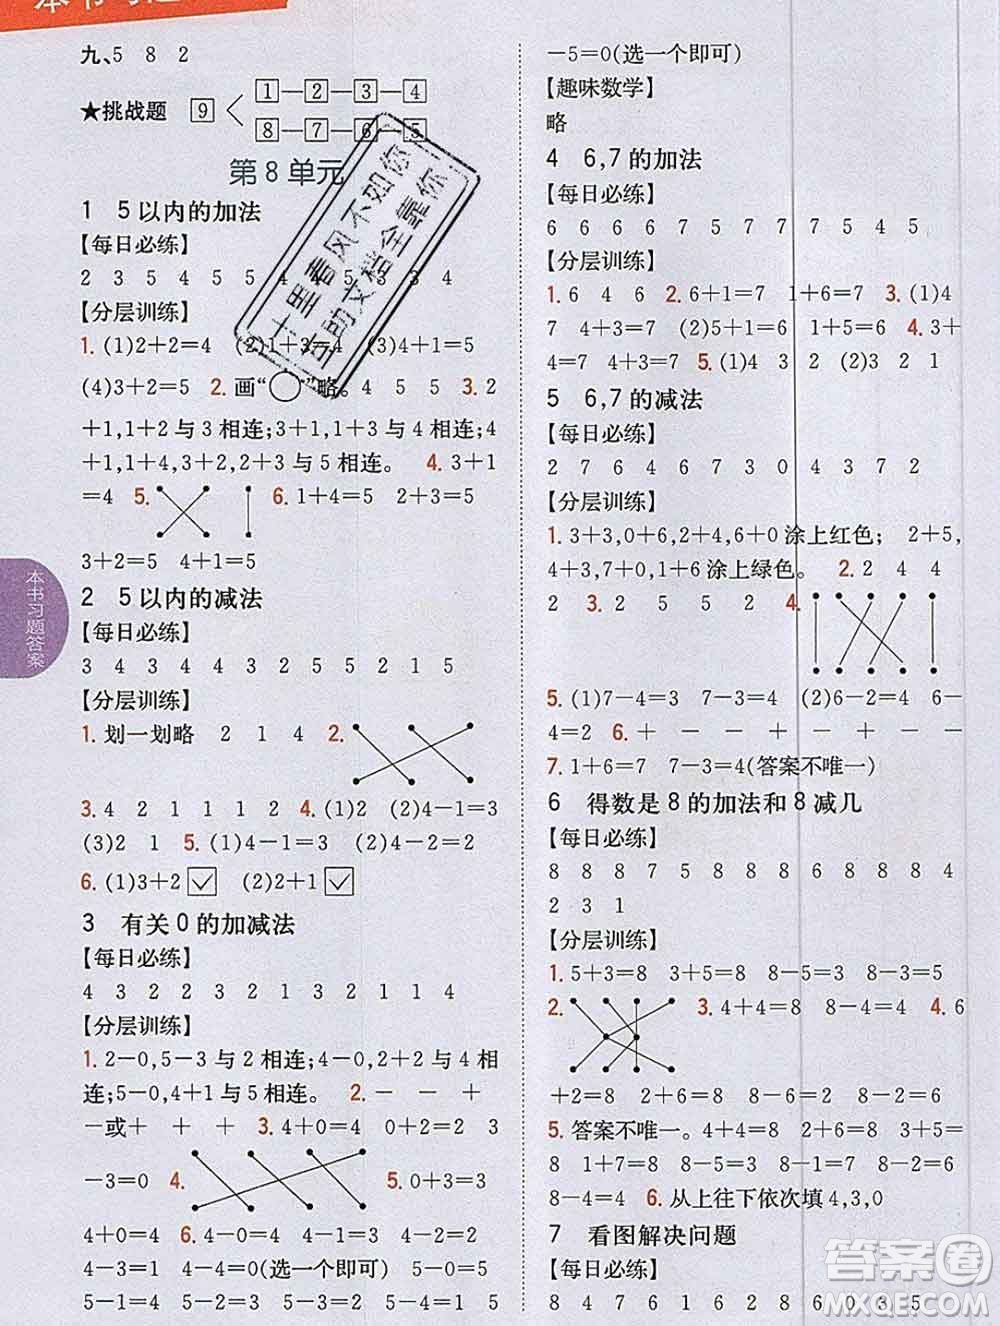 九、5 8 2
★挑战题 9 1 2 3 4
8 7 6 5
第8单元
1 5以内的加法
【每日必练】
2 3 5 4 5 5 4 5 3 3 4
【分层训练】
1. (1)2+2=4 (2)1+3=4 (3)4+1=5
(4)3+2=5 2. 画“○”略。 4 5 5 3. 2
+1,1+2与3相连;3+1,1+3与4相连;4
+1,1+4,2+3,3+2与5相连。 4. 3+1
=4 5. 6. 1+4=5 2+3=5
3+2=5 4+1=5
2 5以内的减法
【每日必练】
3 4 3 4 4 3 2 5 5 2 1 5
【分层训练】
1. 划一划略 2 1 4 2.
3. 4 2 1 1 1 2 4. (1)2 (2)4-1=3
(3)2 1 5. (1)4-1=3 (2)4-2=2
6. (1)3+2 ✓ (2)2+1 ✓
3 有关0的加减法
【每日必练】
4 3 2 2 3 2 1 3 2 1 1 4
【分层训练】
1. 2-0,5-3与2相连;4-0,2+2与4相
连;5-0,4+1与5相连。 2. - - + +
-或+ + + 3. 4+0=4 0+2=2 3
-3=0 4. 5. 3-0=3
4+0=4 4-0=4 4-1=3 4-2=2
4-3=1 4-4=0(选一个即可) 5-0=5
5-1=4 5-2=3 5-3=2 5-4=1 5
-5=0(选一个即可)
【趣味数学】
略
4 6,7的加法
【每日必练】
6 6 6 6 7 5 7 7 7 5 4 5
【分层训练】
1. 6 4 6 2. 6+1=7 1+6=7 3. (1)4
7 4+3=7 (2)5 1+5=6 4. 3+
4=7 4+3=7 5. (1)4 3 (2)3 2 1
5 6,7的减法
【每日必练】
2 7 6 4 6 7 3 0 4 3 7 2
【分层训练】
1. 3+3,0+6,2+4,6+0涂上红色; 2+5,
4+3,7+0,1+6涂上绿色。 2. 2 4
2 3. 2 5 5 2 4.
5. (1)7-4=3 7-3=4 (2)6-2=4 6-
4=2 6. + - - + - -
7. 1+6=7 7-3=4(答案不唯一)
6 得数是8的加法和8减几
【每日必练】
8 8 8 7 5 8 8 6 8 8 8 4
2 3 1
【分层训练】
1. 5+3=8 3+5=8 8-5=3 8-3=5
2. 3. 4+4=8 8-4=4 4. 6
+2=8 2+6=8 8-6=2 8-2=6
5. 答案不唯一。4+4=8 2+6=8 5+3=
8 1+7=8 8-5=3 8-1=7 8-2=6
8-4=4 6. 从上往下依次填4,3,0
7 看图解决问题
【每日必练】
8 4 7 6 1 6 2 8 6 0 3 5
本书习题答案
十里春风不如你
答案圈
MXQE.COM